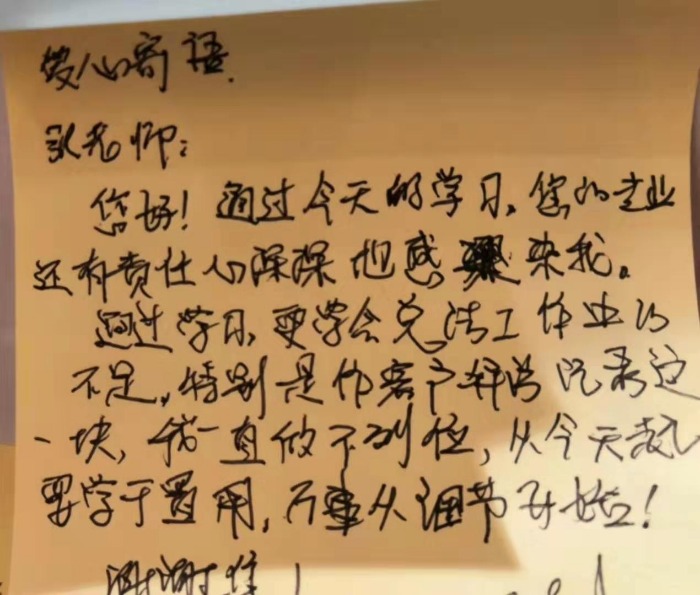 爱心寄语.
张老师:
您好!通过今天的学习,您的专业
还有责任心深深地感染来我。
通过学习,要学会总结工作中的
不足,特别是作客户
一块,我一直做不到位,从今天起
要学于置用,万事从细节开始!
谢谢您!